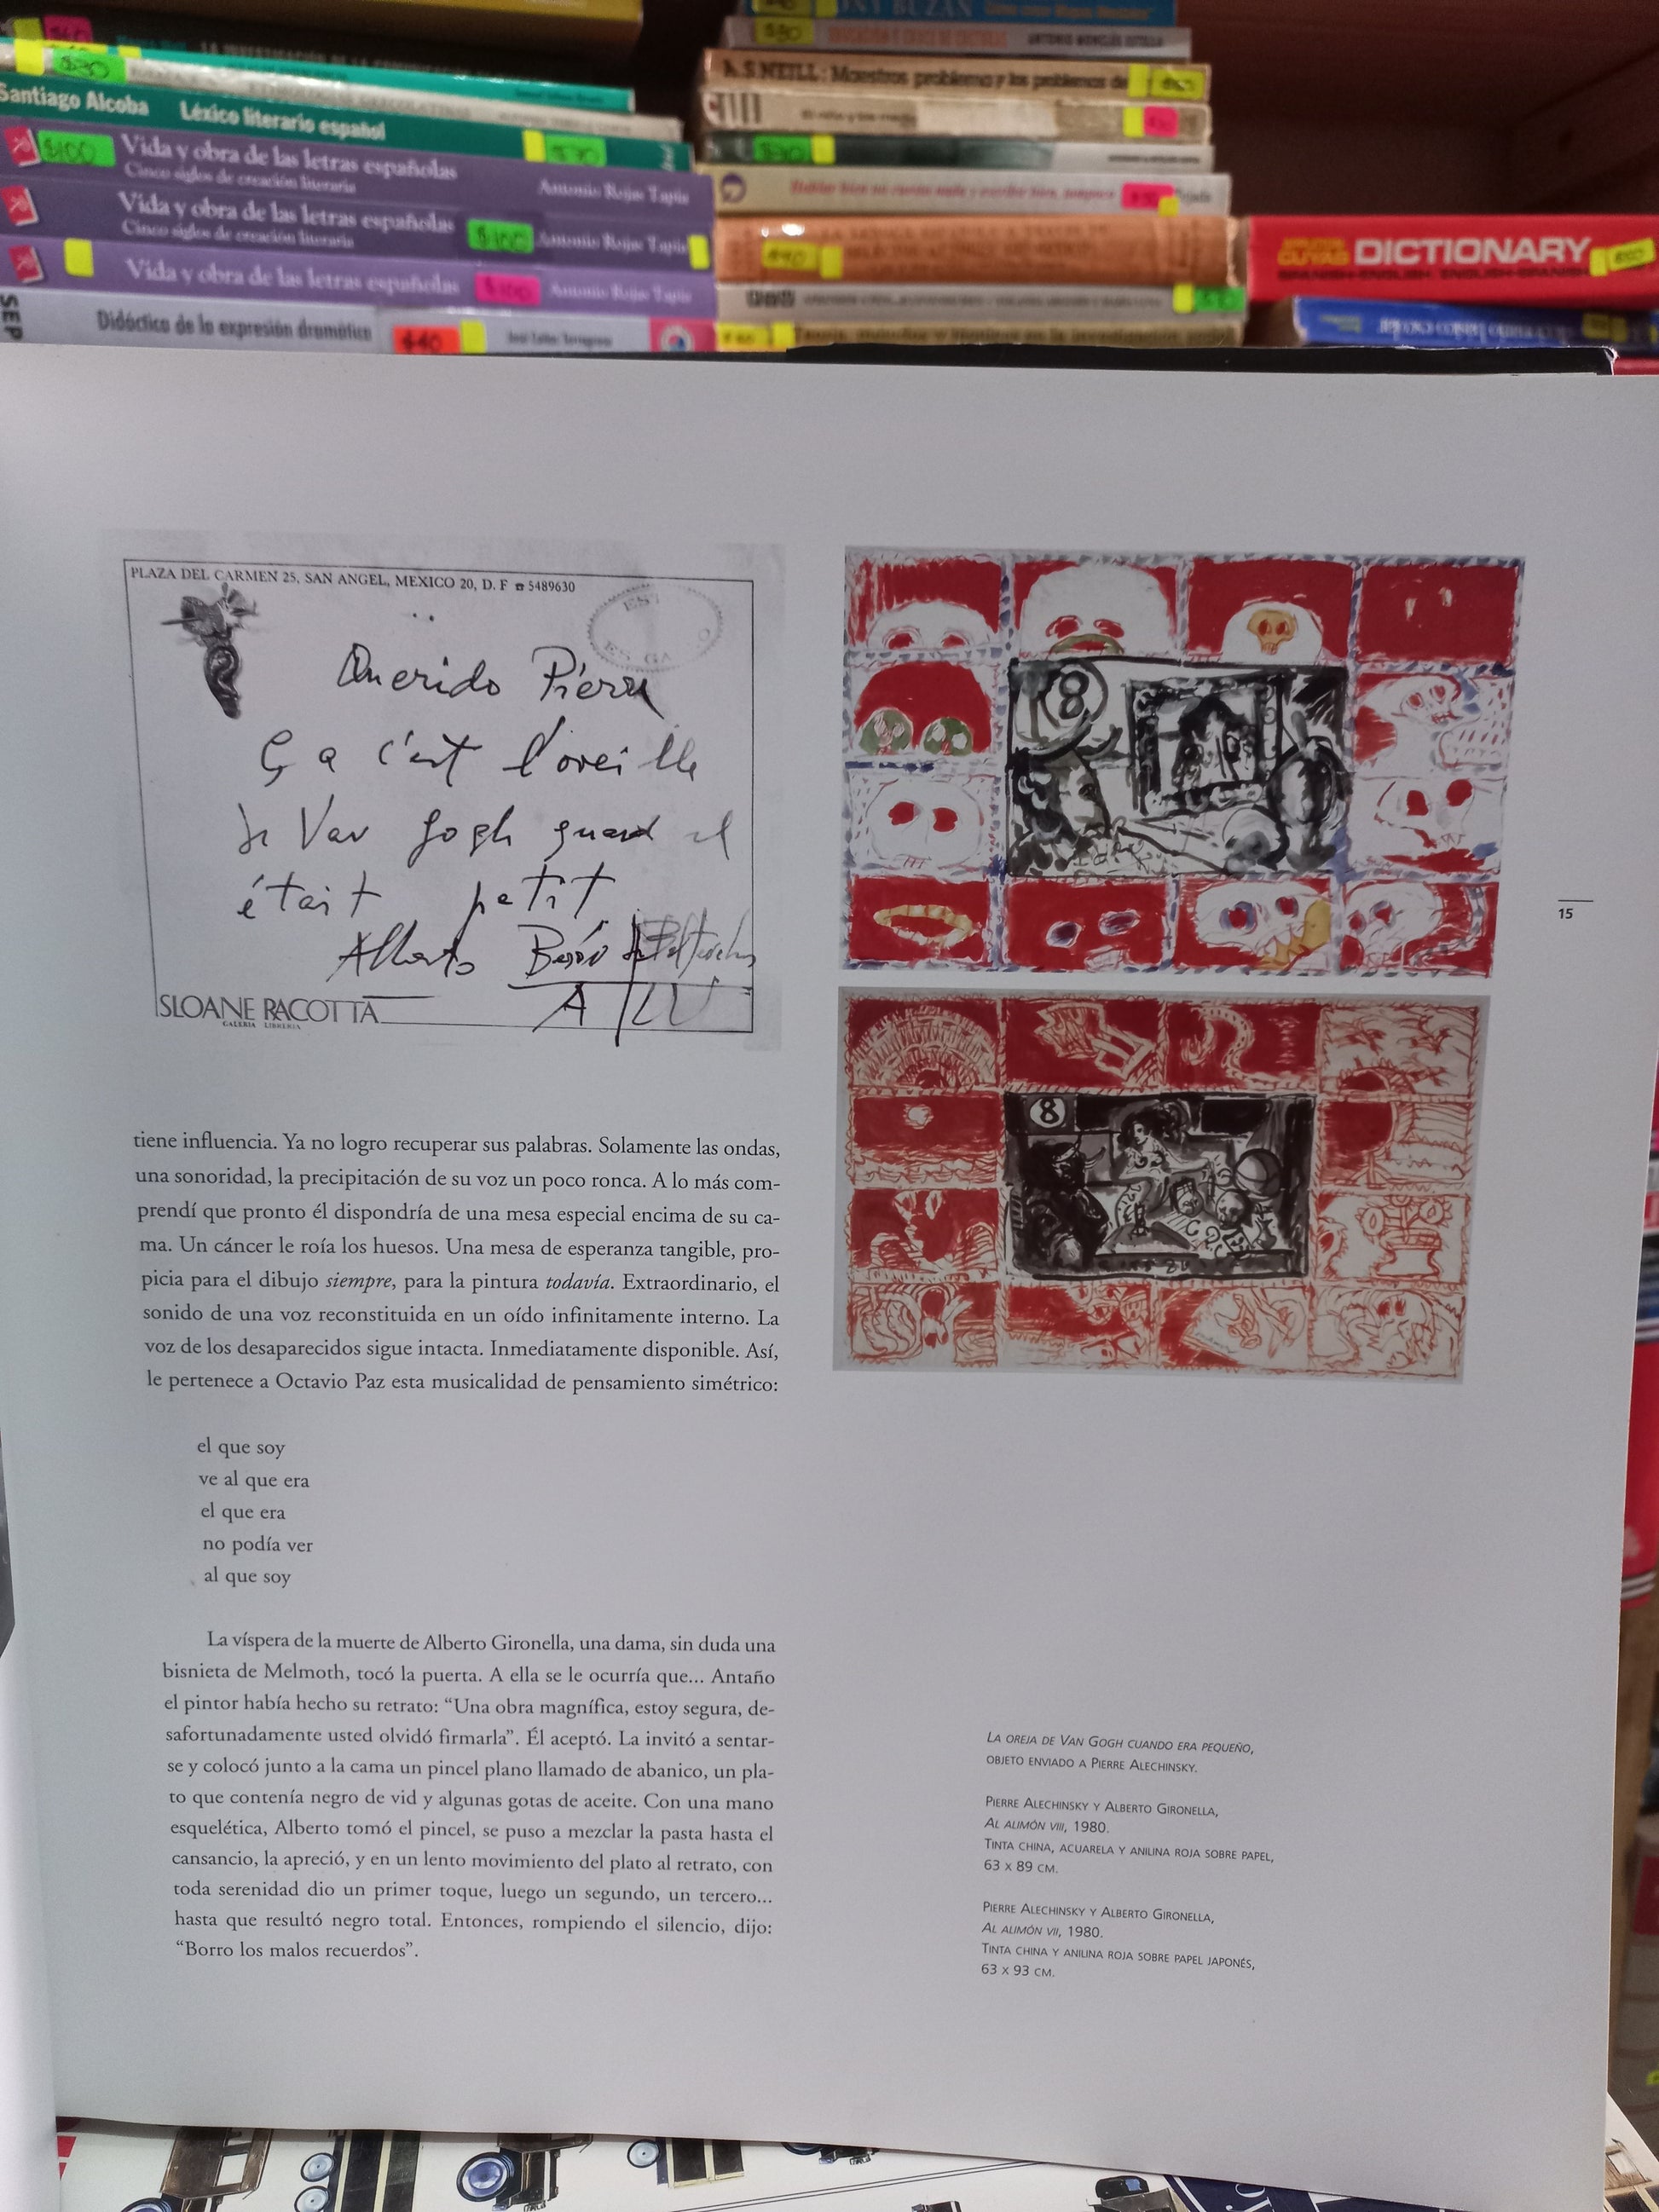 TONY BUZAN
$80
ANTONIO MONCLÚS ESTELLA
A. S. NEILL: Maestros problema y los problemas de
Santiago Alcoba Léxico literario español
$100
Vida y obra de las letras españolas
Cinco siglos de creación literaria
Antonio Rojas Tapia
Vida y obra de las letras españolas
Cinco siglos de creación literaria
$100
Antonio Rojas Tapia
Vida y obra de las letras españolas
Antonio Rojas Tapia
SEP
Didáctica de la expresión dramática
$40
DICTIONARY
SPANISH-ENGLISH ENGLISH-SPANISH
PLAZA DEL CARMEN 25, SAN ANGEL, MEXICO 20, D. F ☎ 5489630
Querido Pierre
Ça c'est l'oreille
de Van Gogh quand il
était petit
Alberto
SLOANE RACOTTA
GALERIA LIBRERIA
8
8
15
tiene influencia. Ya no logro recuperar sus palabras. Solamente las ondas,
una sonoridad, la precipitación de su voz un poco ronca. A lo más com-
prendí que pronto él dispondría de una mesa especial encima de su ca-
ma. Un cáncer le roía los huesos. Una mesa de esperanza tangible, pro-
picia para el dibujo siempre, para la pintura todavía. Extraordinario, el
sonido de una voz reconstituida en un oído infinitamente interno. La
voz de los desaparecidos sigue intacta. Inmediatamente disponible. Así,
le pertenece a Octavio Paz esta musicalidad de pensamiento simétrico:
el que soy
ve al que era
el que era
no podía ver
al que soy
La víspera de la muerte de Alberto Gironella, una dama, sin duda una
bisnieta de Melmoth, tocó la puerta. A ella se le ocurría que... Antaño
el pintor había hecho su retrato: “Una obra magnífica, estoy segura, de-
safortunadamente usted olvidó firmarla”. Él aceptó. La invitó a sentar-
se y colocó junto a la cama un pincel plano llamado de abanico, un pla-
to que contenía negro de vid y algunas gotas de aceite. Con una mano
esquelética, Alberto tomó el pincel, se puso a mezclar la pasta hasta el
cansancio, la apreció, y en un lento movimiento del plato al retrato, con
toda serenidad dio un primer toque, luego un segundo, un tercero...
hasta que resultó negro total. Entonces, rompiendo el silencio, dijo:
“Borro los malos recuerdos”.
LA OREJA DE VAN GOGH CUANDO ERA PEQUEÑO,
OBJETO ENVIADO A PIERRE ALECHINSKY.
PIERRE ALECHINSKY Y ALBERTO GIRONELLA,
AL ALIMÓN VIII, 1980.
TINTA CHINA, ACUARELA Y ANILINA ROJA SOBRE PAPEL,
63 X 89 CM.
PIERRE ALECHINSKY Y ALBERTO GIRONELLA,
AL ALIMÓN VII, 1980.
TINTA CHINA Y ANILINA ROJA SOBRE PAPEL JAPONÉS,
63 X 93 CM.